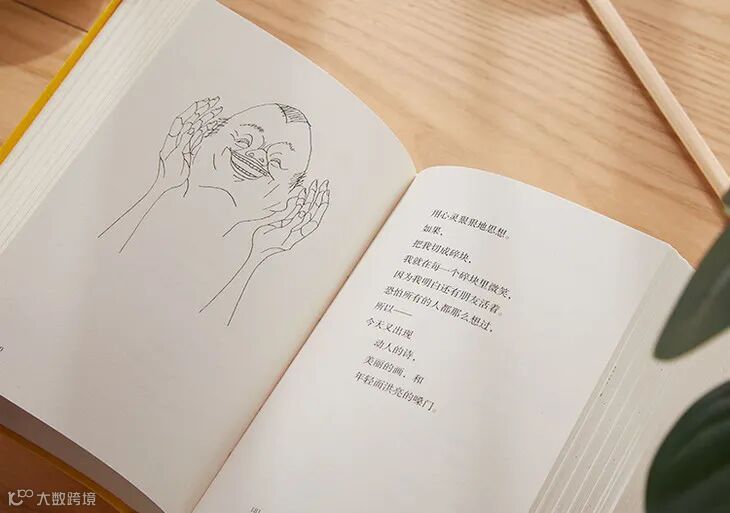 用心灵狠狠地思想。
如果，
把我切成碎块，
我就在每一个碎块里微笑，
因为我明白还有朋友活着。
恐怕所有的人都那么想过，
所以——
今天又出现
动人的诗，
美丽的画，和
年轻而洪亮的嗓门。
大数跨境